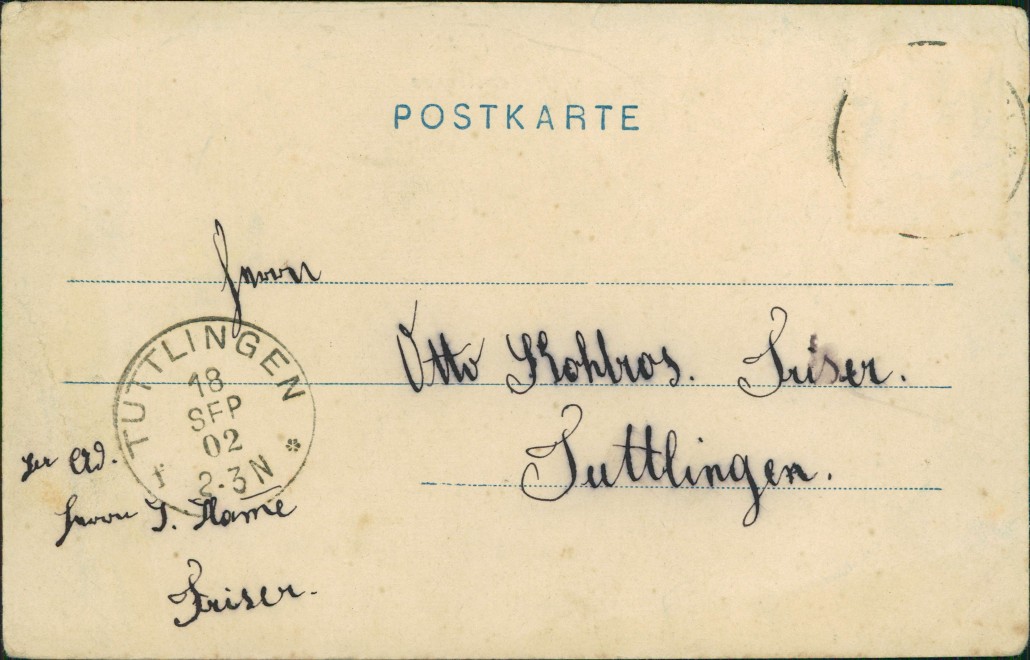 POSTKARTE
Herrn
Otto Kohbros. Friser.
Tuttlingen.
TUTTLINGEN
18
SEP
02
2-3N
per Ad.
Herrn J. Hame
Friser.